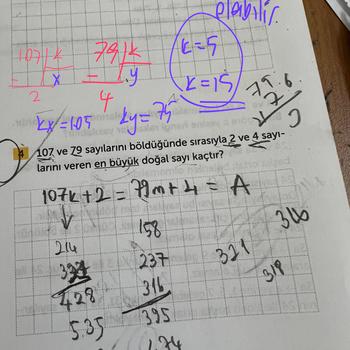 olabilir.
107 | k
x
2
79 | k
.y
4
k=5
k=15
kx=105
ky=75
79.6
4 107 ve 79 sayılarını böldüğünde sırasıyla 2 ve 4 sayı-
larını veren en büyük doğal sayı kaçtır?
107k+2=79m+4=A
214
428
5.35
158
237
316
395
321
316
318